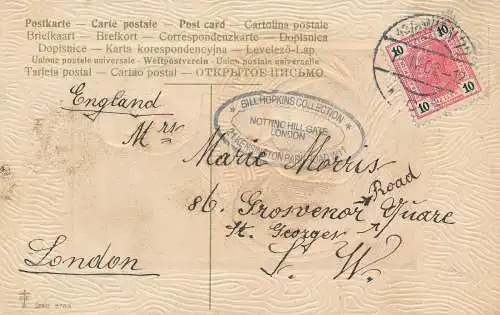 Postkarte — Carte postale — Post card — Cartolina postale
Briefkaart — Brefkort — Correspondenzkarte — Dopisnica
Dopisnice — Karta korespondencyjna — Levelező-Lap
Unione postale universale — Weltpostverein — Union postale universelle
Tarjeta postal — Cartao postal — ОТКРЫТОЕ ПИСЬМО
10 10
10 10
England
BILL HOPKINS COLLECTION
NOTTING HILL GATE
LONDON
KENSINGTON PARK
Mrs
Marie Morris
86, Grosvenor Road
Square
St. Georges
S. W.
London